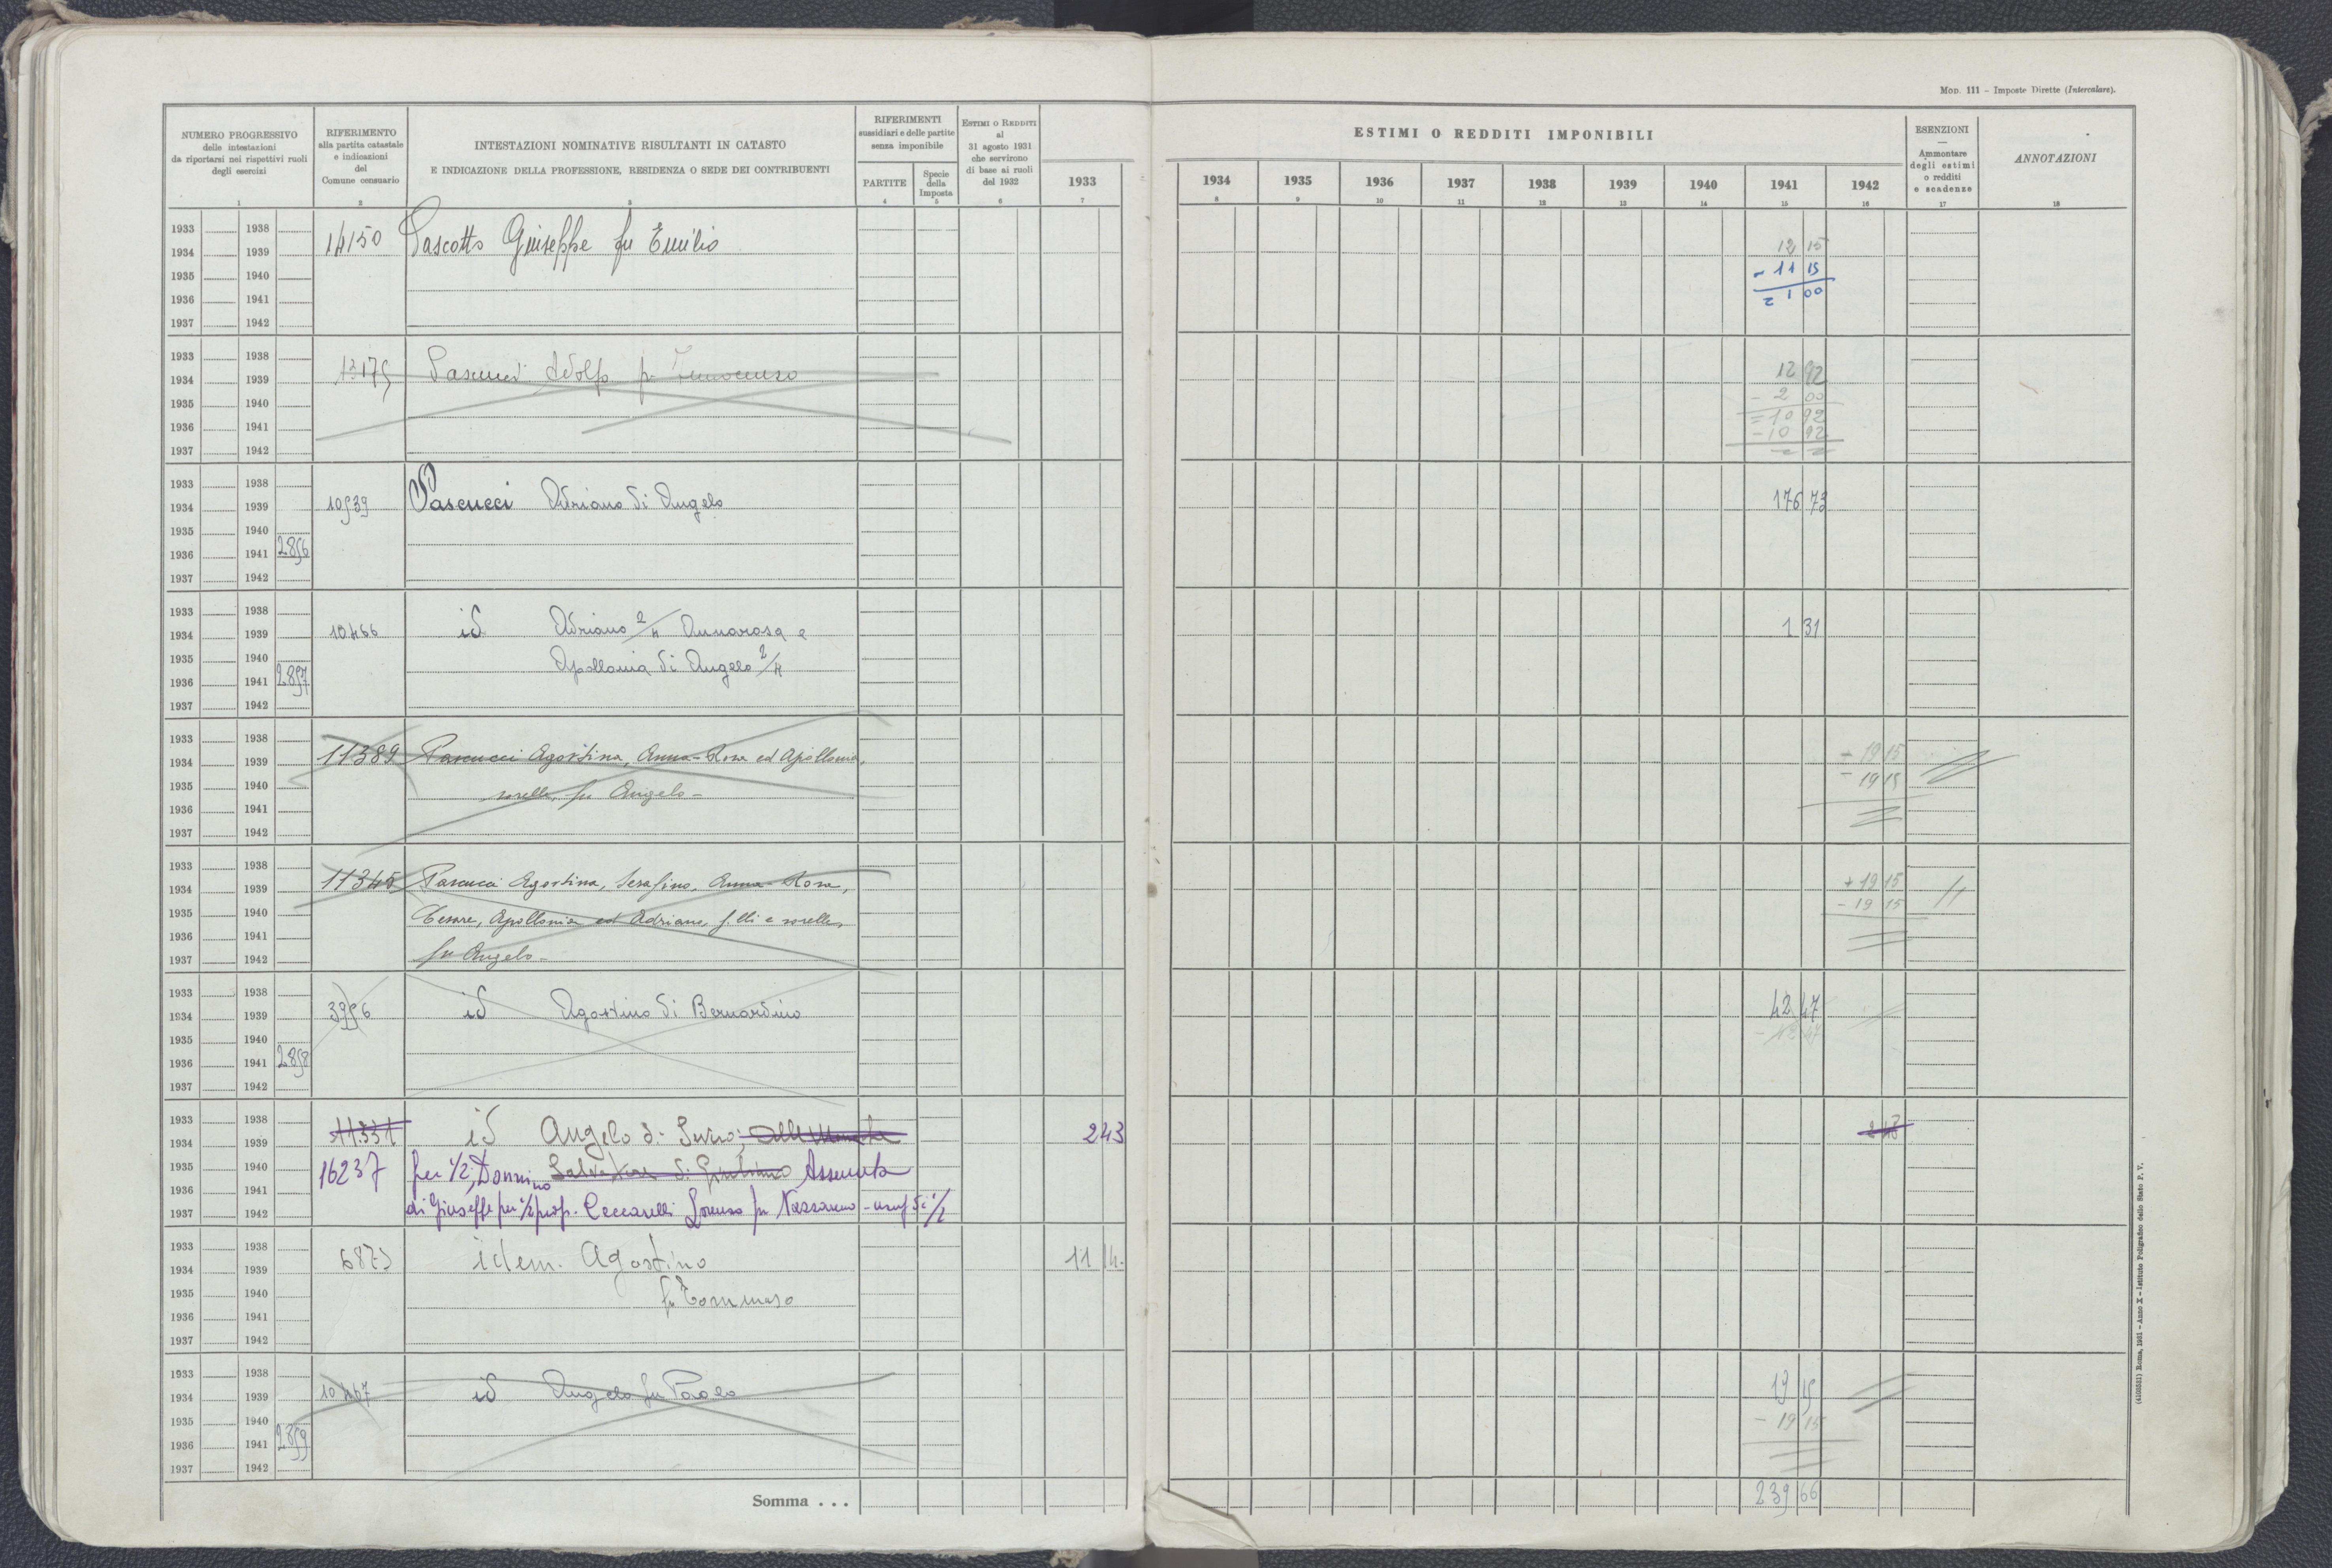 MOD. 111 – Imposte Dirette (Intercalare).
NUMERO PROGRESSIVO
delle intestazioni
da riportarsi nei rispettivi ruoli
degli esercizi
1
RIFERIMENTO
alla partita catastale
e indicazioni
del
Comune censuario
2
INTESTAZIONI NOMINATIVE RISULTANTI IN CATASTO
E INDICAZIONE DELLA PROFESSIONE, RESIDENZA O SEDE DEI CONTRIBUENTI
3
RIFERIMENTI
sussidiari e delle partite
senza imponibile
PARTITE
4
Specie
della
Imposta
5
ESTIMI O REDDITI
al
31 agosto 1931
che servirono
di base ai ruoli
del 1932
6
1933
7
ESTIMI O REDDITI IMPONIBILI
1934 1935 1936 1937 1938 1939 1940 1941 1942
8 9 10 11 12 13 14 15 16
ESENZIONI
—
Ammontare
degli estimi
o redditi
e scadenze
17
ANNOTAZIONI
18
1933 1938
1934 1939 14150 Pascotto Giuseppe fu Emilio 12 15
1935 1940 - 11 15
1936 1941 2 1 00
1937 1942
1933 1938
1934 1939 12175 Pascucci Adolfo fu Innocenzo 12 92
1935 1940 - 2 00
1936 1941 = 10 92
- 10 92
1937 1942
1933 1938
1934 1939 10539 Pascucci Adriano di Angelo 176 73
1935 1940
1936 1941 2856
1937 1942
1933 1938
1934 1939 10466 id Adriano 2/4 Annarosa e 1 31
1935 1940 Apollonia di Angelo 2/4
1936 1941 2857
1937 1942
1933 1938
1934 1939 11389 Pascucci Agostina, Anna-Rosa ed Apollonia, + 19 15
1935 1940 - 19 15
1936 1941 sorelle, fu Angelo -
1937 1942
1933 1938
1934 1939 11345 Pascucci Agostina, Serafino, Anna-Rosa, + 19 15
1935 1940 Cesare, Apollonia ed Adriano, f.lli e sorelle, - 19 15
1936 1941
1937 1942 fu Angelo -
1933 1938
1934 1939 3956 id Agostino di Bernardino 42 47
1935 1940
1936 1941 2858
1937 1942
1933 1938
1934 1939 11.331 id Angelo di 243 243
1935 1940 16237 per 1/2, Donnino Salvatore di Giuliano Assunta
1936 1941
1937 1942 di Giuseppe per 1/2 prop. Ceccarelli Lorenzo fu Nazzareno - usuf di 1/2
1933 1938
1934 1939 6873 idem. Agostino 11 14
1935 1940 fu Tommaso
1936 1941
1937 1942
1933 1938
1934 1939 10467 id Angelo fu Paolo 19 15
1935 1940 - 19 15
1936 1941 2859
1937 1942
Somma . . . 239 66
(4105531) Roma, 1931 – Anno X – Istituto Poligrafico dello Stato P. V.